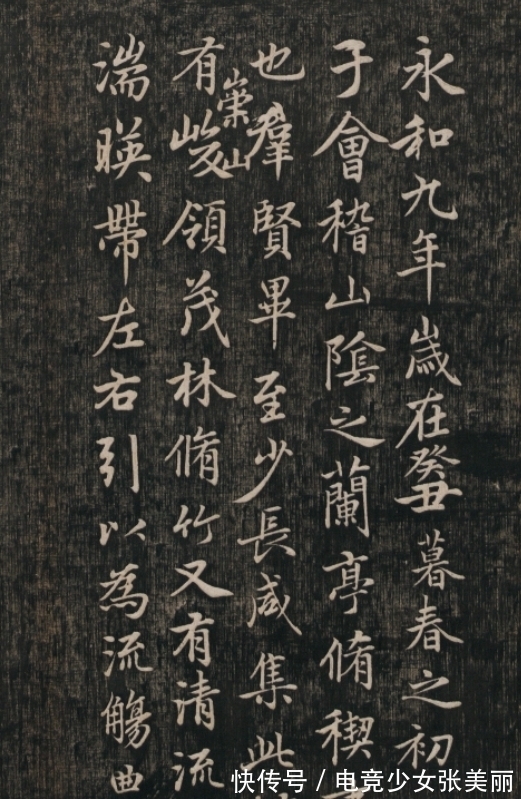 永和九年歲在癸丑暮春之初
于會稽山陰之蘭亭脩稧
也羣賢畢至少長咸集此
有崇山峻領茂林脩竹又有清流
湍暎帶左右引以為流觴曲
快传号 / 电竞少女张美丽